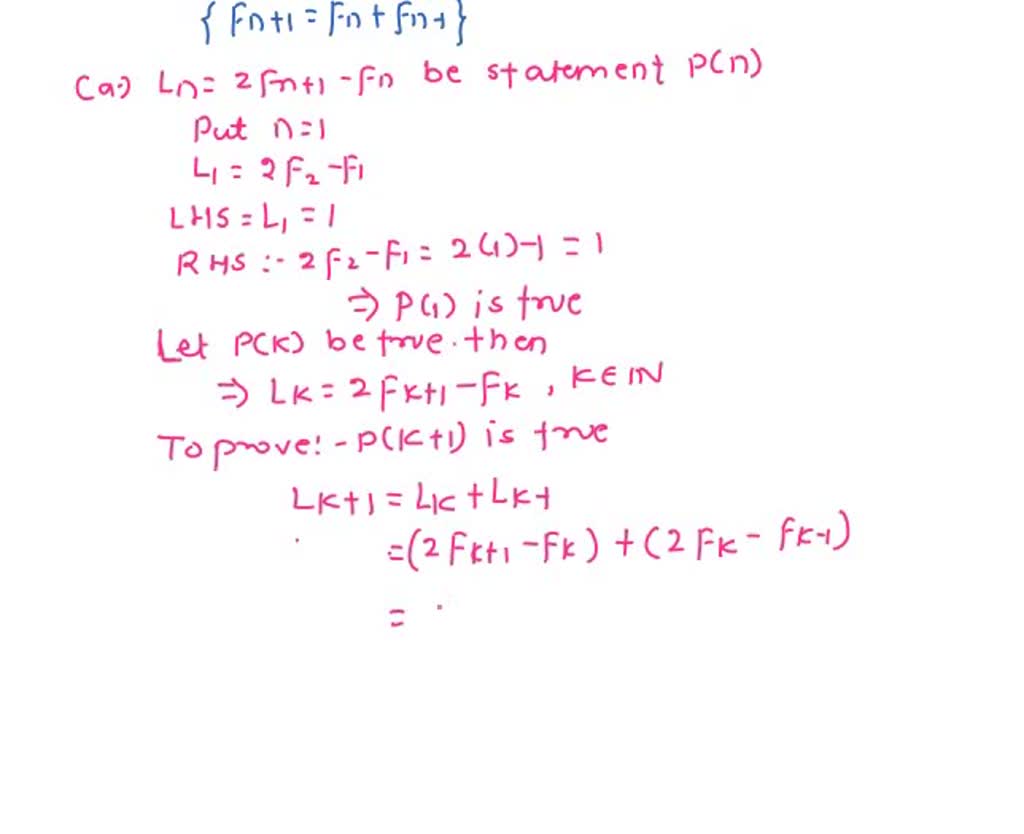 { Fn+1 = Fn + Fn-1 }
(a.) Ln = 2Fn+1 - Fn be statement P(n)
Put n=1
L1 = 2F2 - F1
LHS = L1 = 1
RHS :- 2F2 - F1 = 2(1)-1 = 1
⇒ P(1) is true
Let P(K) be true. then
⇒ LK = 2FK+1 - FK , K∈IN
To prove:- P(K+1) is true
LK+1 = LK + LK-1
= (2FK+1 - FK) + (2FK - FK-1)
=